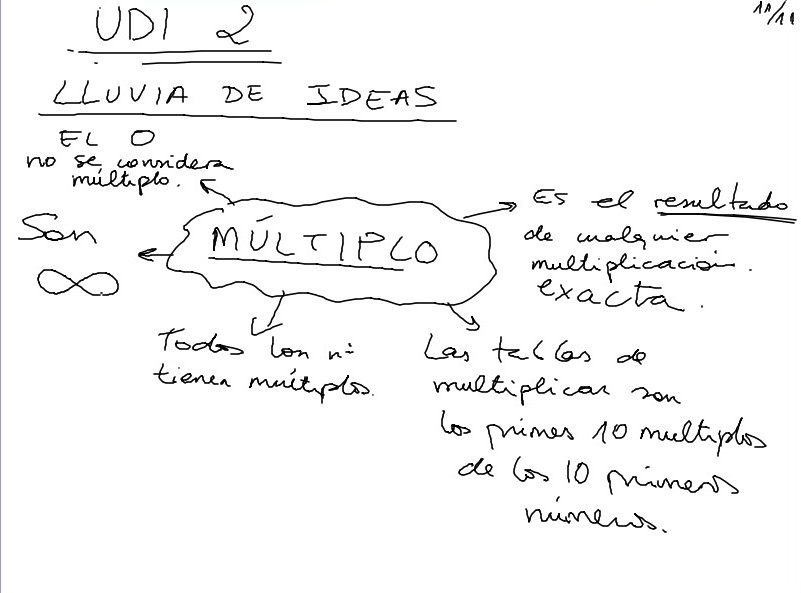 11/11
UDI 2
LLUVIA DE IDEAS
EL 0
no se considera
múltiplo.
Son
∞
MÚLTIPLO
Es el resultado
de cualquier
multiplicación.
exacta.
Todos los nº
tienen múltiplos.
Las tablas de
multiplicar son
los primes 10 multiplos
de los 10 primeros
números.